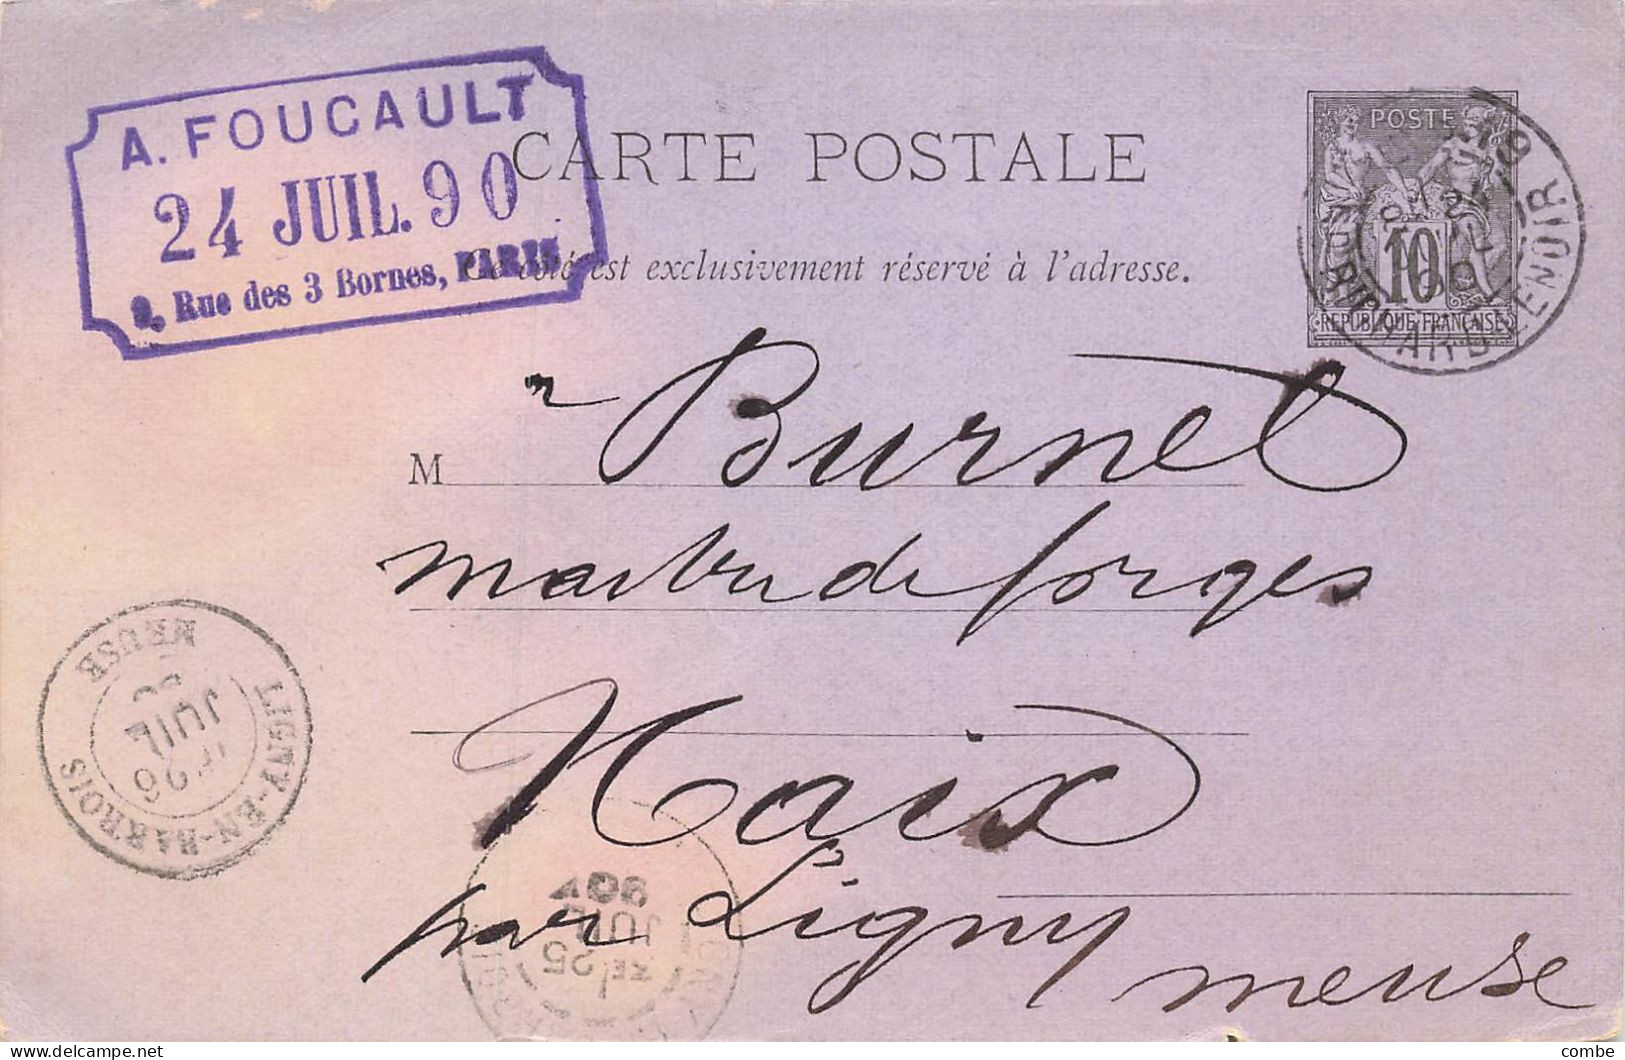 A. FOUCAULT
24 JUIL. 90
Rue des 3 Bornes, PARIS
CARTE POSTALE
Ce côté est exclusivement réservé à l'adresse.
POSTE
10
REPUBLIQUE FRANÇAISE
RICHARD LENOIR
M r Burnet
maitre de forges
Naix
par Ligny
meuse
LIGNY-EN-BARROIS
26
JUIL
MEUSE
25
JUIL
90
delcampe.net
combe